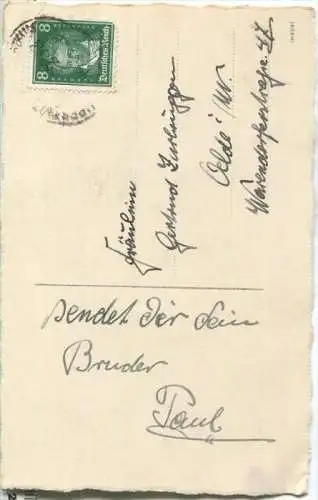 8 Deutsches Reich 8
Fräulein
Gertrud
Oelde i/W.
Warendorferstrasse 77
sendet Dir Dein
Bruder
Paul